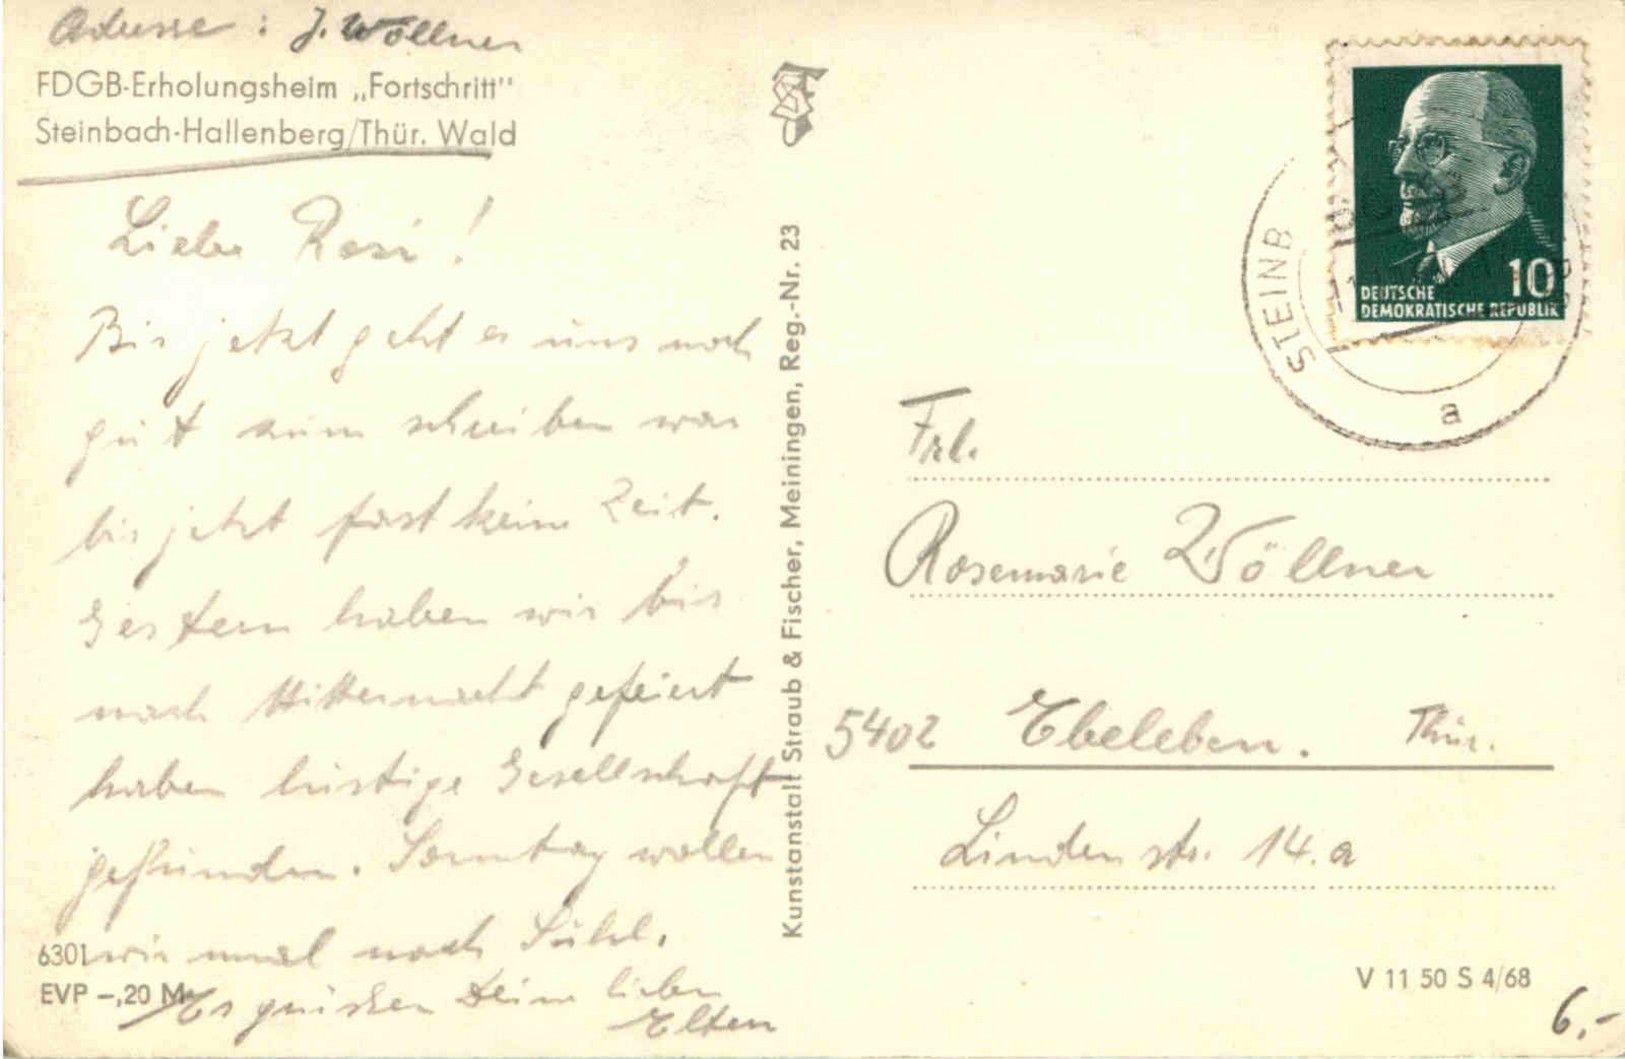 Adresse : J. Wöllner
FDGB-Erholungsheim „Fortschritt"
Steinbach-Hallenberg/Thür. Wald
Liebe Rosi !
Bis jetzt geht es uns noch
gut zum schreiben war
bis jetzt fast keine Zeit.
Gestern haben wir bis
nach Mitternacht gefeiert
haben lustige Gesellschaft
gefunden. Sonntag wollen
wir mal nach Suhl.
Es grüssen Deine lieben
Eltern
6301
EVP -,20 M
Kunstanstalt Straub & Fischer, Meiningen, Reg.-Nr. 23
10
DEUTSCHE
DEMOKRATISCHE REPUBLIK
STEINB
a
Frl.
Rosemarie Wöllner
5402 Ebeleben. Thür.
Lindenstr. 14.a
V 11 50 S 4/68
6,-